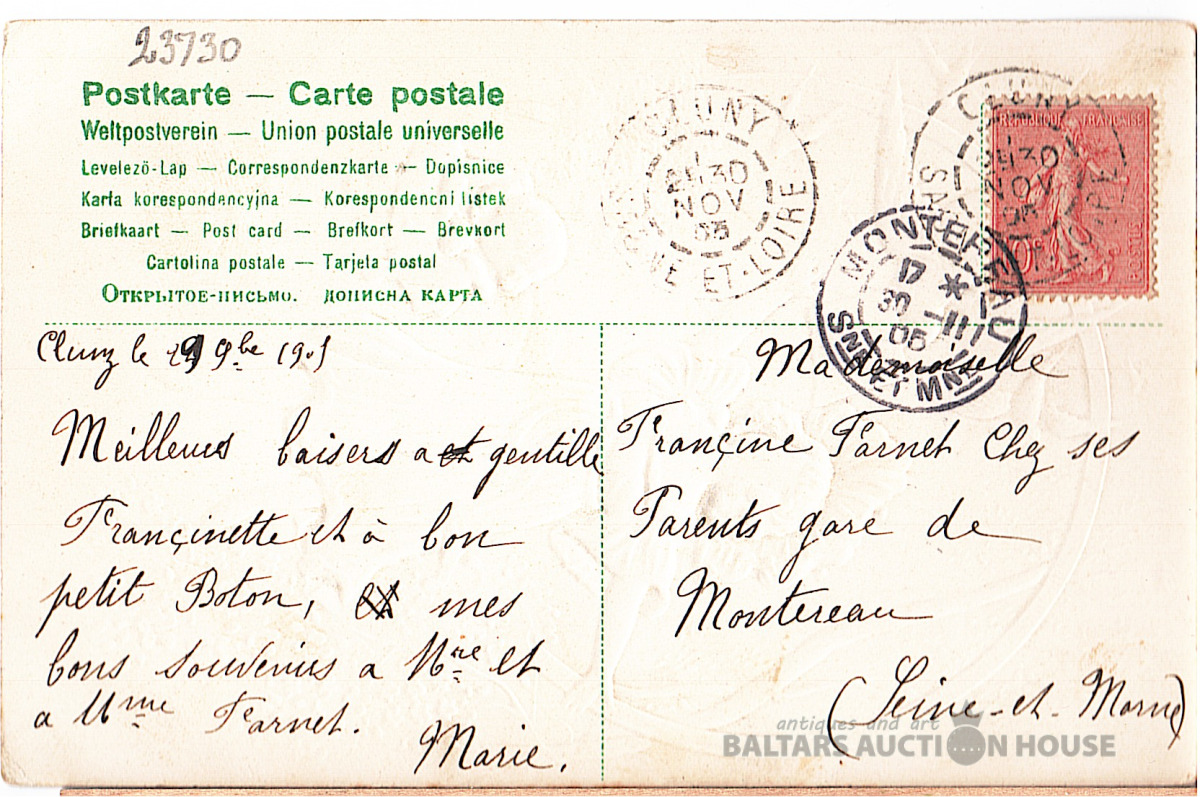 23730
Postkarte — Carte postale
Weltpostverein — Union postale universelle
Levelező-Lap — Correspondenzkarte — Dopisnice
Karta korespondencyjna — Korespondencni listek
Briefkaart — Post card — Brefkort — Brevkort
Cartolina postale — Tarjeta postal
Открытое-письмо. дописна карта
CLUNY
30
NOV
05
ET-LOIRE
CLUNY
30
NOV
05
REPUBLIQUE FRANÇAISE
MONTEREAU
17 *
30 -11
05
SNE ET MNE
Cluny le 29 9bre 1905
Meilleurs baisers a gentille
Françinette et à bon
petit Boton, mes
bons souvenirs a Mre et
a Mme Farnet.
Marie.
Mademoiselle
Françine Farnet Chez ses
Parents gare de
Montereau
(Seine-et-Marne)
antiques and art
BALTARS AUCTION HOUSE